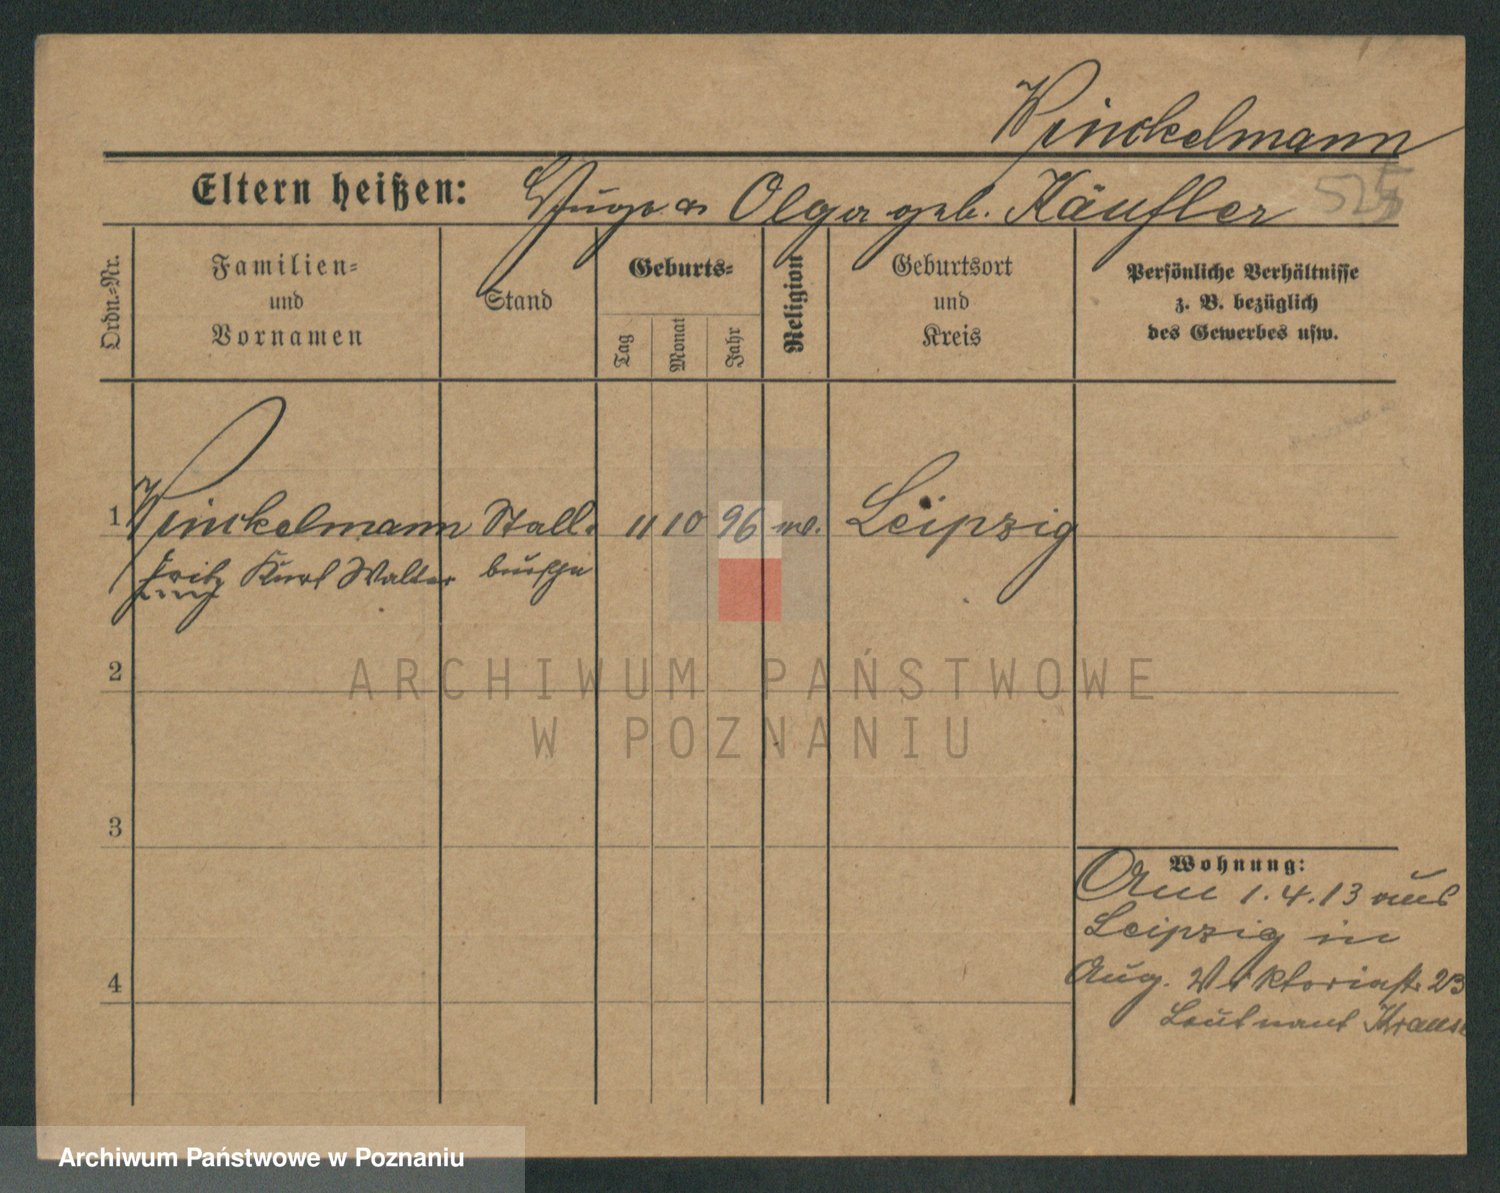 Winckelmann
Eltern heißen: Hugo u. Olga geb. Käufler 525
Ordn.-Nr.
Familien-
und
Vornamen
Stand
Geburts-
Tag
Monat
Jahr
Religion
Geburtsort
und
Kreis
Persönliche Verhältnisse
z. B. bezüglich
des Gewerbes usw.
1 Winckelmann Stall- 11 10 96 ev. Leipzig
Fritz Kurt Walter bursche
2
3
4
Wohnung:
Am 1.4.13 aus
Leipzig in
Aug. Viktoriastr. 23
Leutnant Krause
ARCHIWUM PAŃSTWOWE
W POZNANIU
Archiwum Państwowe w Poznaniu